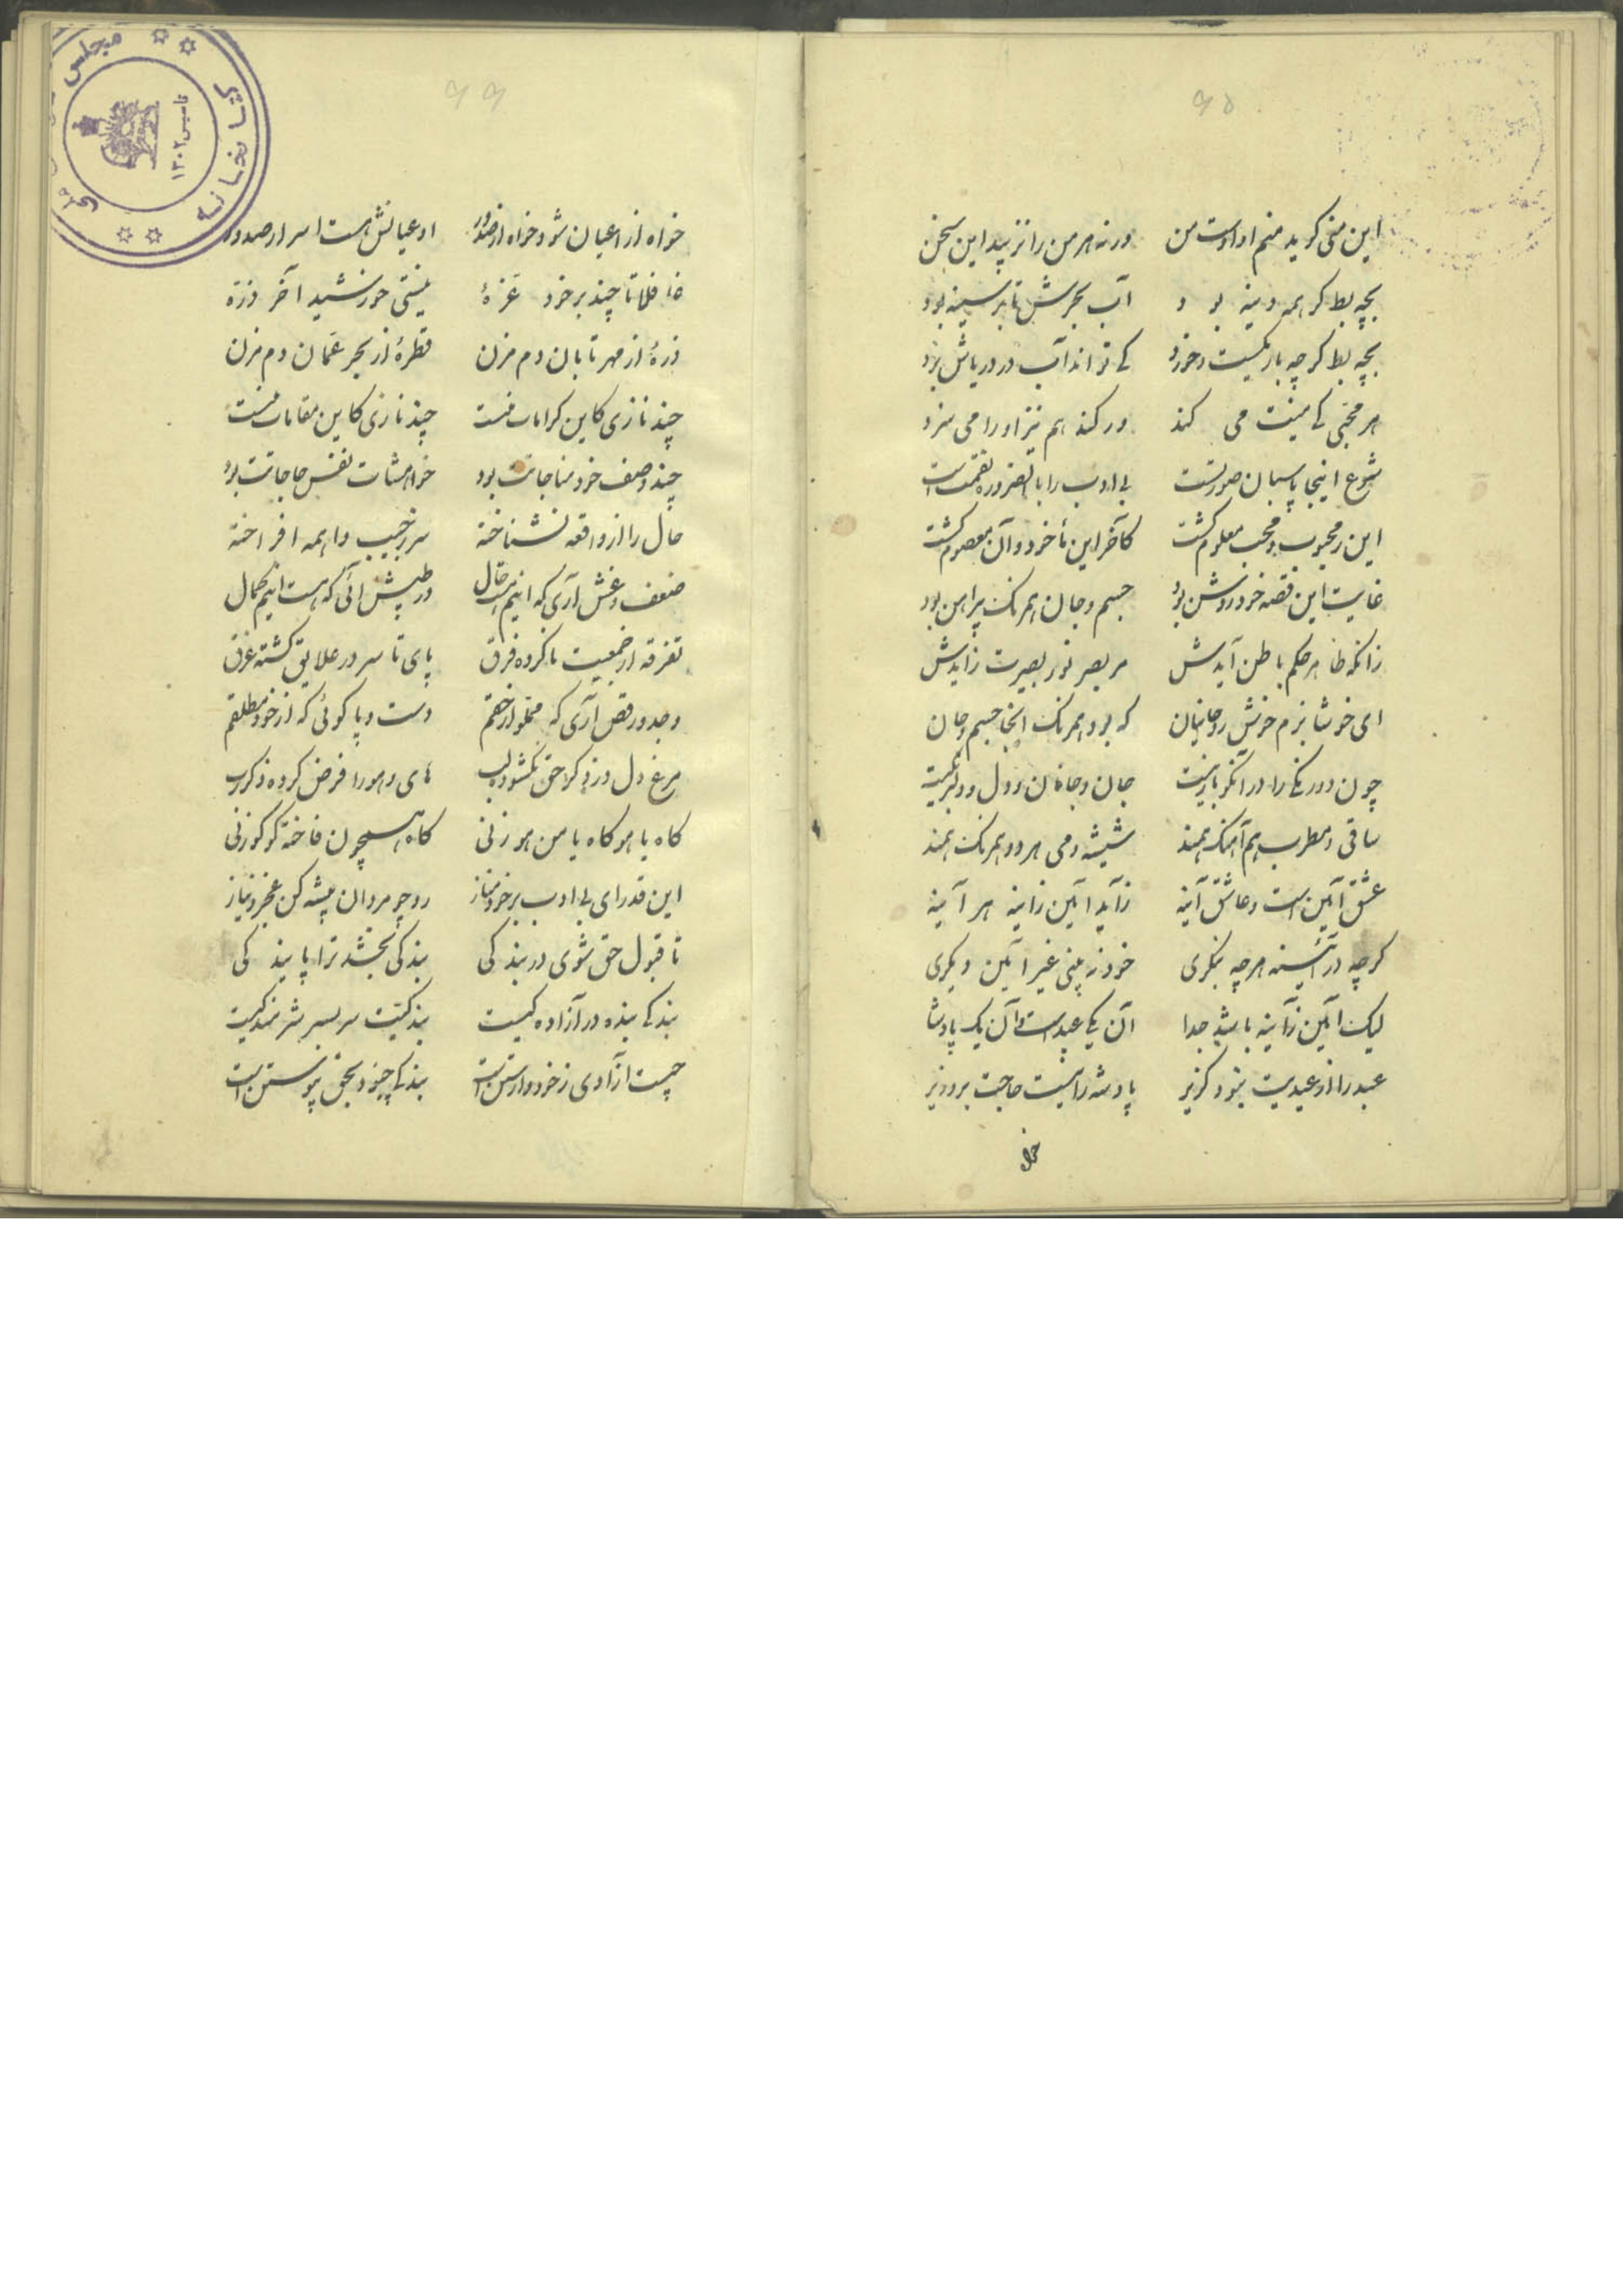 ۶۵
این منی گوید منم او اوست من ورنه هر من را نزیبد این سخن
بچه بط گر همه دینه بود آب بحرش تا بر سینه بود
بچه بط گرچه باریکست و خرد کی تواند آب در دریاش برد
هر محبی کی منیت می کند ور کند هم نیز او را می سزد
شرع اینجا پاسبان صورتست بی ادب را بالضروره نقمت است
این ز محبوب و محب معلوم گشت کآخر این مأخوذ و آن معصوم گشت
غایت این قصه خود روشن بود جسم و جان همرنگ پیراهن بود
زانکه ظاهر حکم باطن آیدش مر بصر نور بصیرت زایدش
ای خوشا بزم خوش روحانیان که بود همرنگ آنجا جسم و جان
چون دورنگی را در آنکو بار نیست جان و جانان و دل و دلبر یکیست
ساقی و مطرب هم آهنگ همند شیشه و می هر دو همرنگ همند
عشق آیین است و عاشق آینه زآید آیین زاینه هر آینه
گرچه در آئینه هرچه بنگری خود نه بینی غیر آیین دیگری
لیک آیین زآینه باشد جدا آن یکی عبد است و آن یک پادشا
عبد را از عبدیت نبود گزیر پادشه را نیست حاجت بر وزیر
خواه
۶۶
خواه از اعیان شو و خواه از صدور او عیانش هست اسرار صدور
غافلا تا چند بر خود غرهٔ نیستی خورشید آخر ذرهٔ
ذرهٔ از مهر تابان دم مزن قطرهٔ از بحر عمان دم مزن
چند نازی کاین کرامات منست چند نازی کاین مقامات منست
چند وصف خود مناجاتت بود خواهشات نفس حاجاتت بود
حال را از واقعه نشناخته سر ز جیب واهمه افراخته
ضعف و غش آری که اینم هست حال در طپش آئی که هست اینم کمال
تفرقه از جمعیت ناکرده فرق پای تا سر در علایق گشته غرق
وجد و رقص آری که مملو از حقم دست و پا کوئی که از خود مطلقم
مرغ دل در ذکر حق نگشوده لب های و هو را فرض کرده ذکر رب
گاه یا هو گاه یا من هو زنی گاه همچون فاخته کوکو زنی
این قدر ای بی ادب بر خود مناز رو چو مردان پیشه کن عجز و نیاز
تا قبول حق شوی در بندگی بندگی بخشد ترا پایندگی
بندگی بنده در آزادگیست بندگیت سر بسر شرمندگیست
چیست آزادی ز خود وارستن است بندگی چبود بحق پیوستن است
کتابخانه
مجلس
ملی
تاسیس ۱۳۰۲